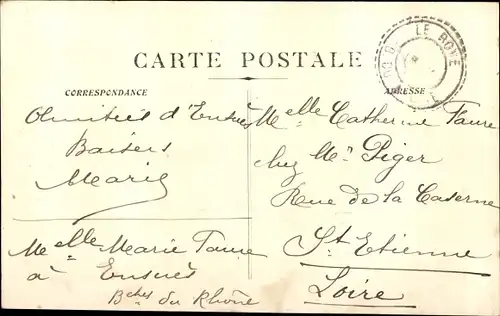 LE ROVE
CARTE POSTALE
CORRESPONDANCE
ADRESSE
Amitiés d'Ensuès
Baisers
Marie
Melle Marie Faure
à Ensuès
Bches du Rhône
Melle Catherine Faure
chez Mr Piger
Rue de la Caserne
St Etienne
Loire